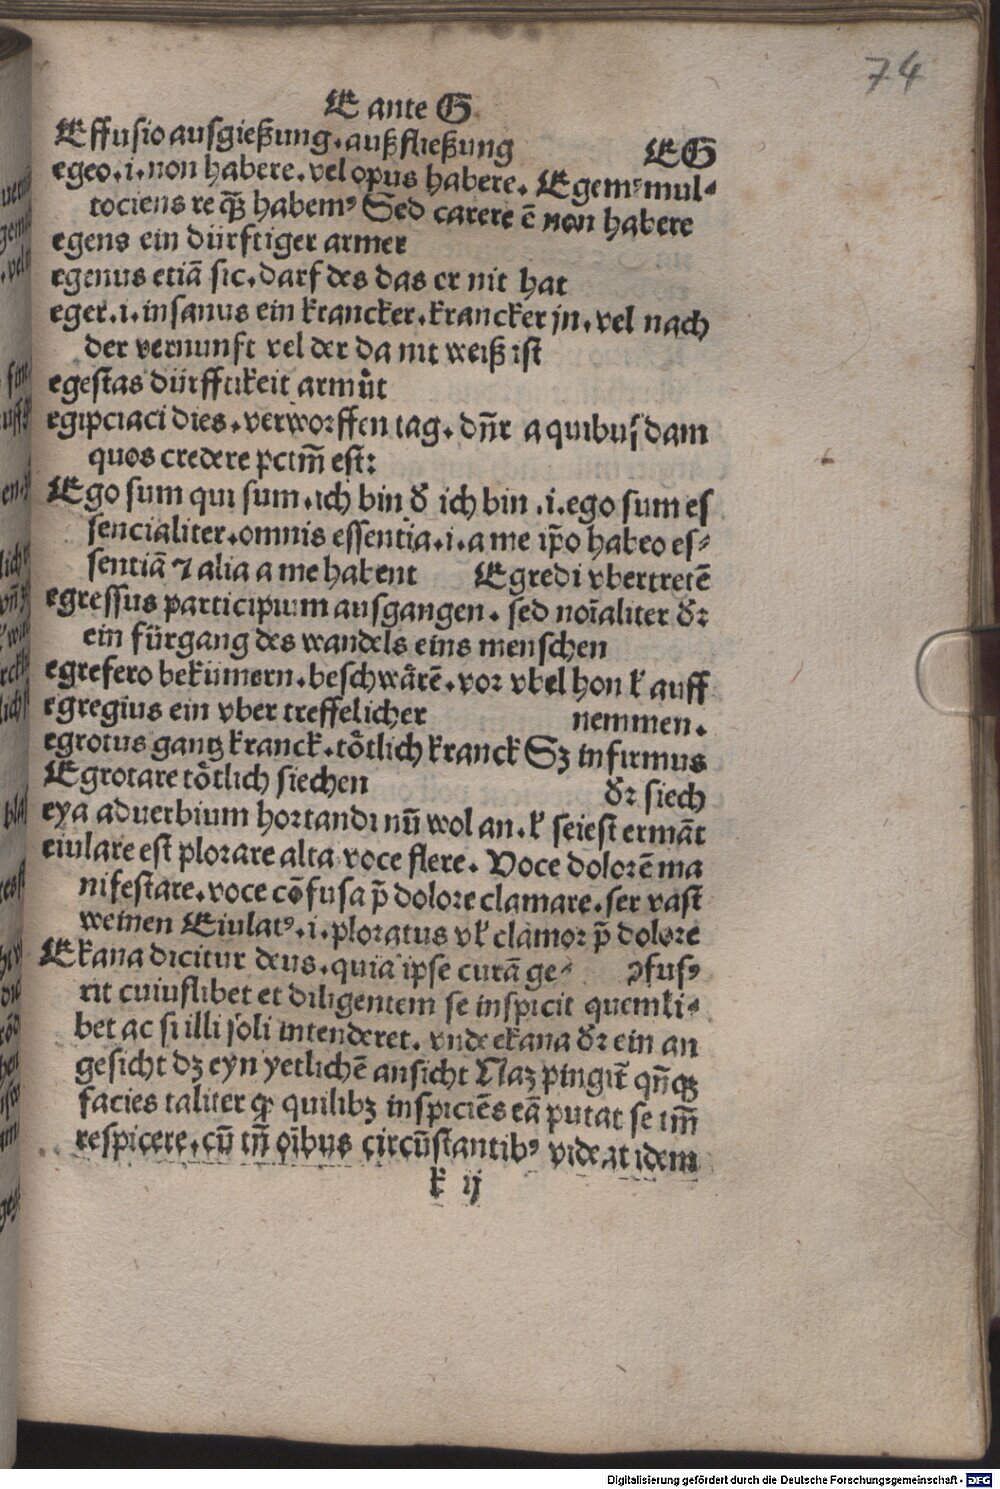 74
E ante G
Effusio ausgießung.außfließung
EG
egeo.i.non habere.vel opus habere. Egemꝰ mul⸗
tociens re qꝫ habemꝰ Sed carere ē non habere
egens ein dürftiger armer
egenus etiā sic.darf des das er nit hat
eger.i.insanus ein krancker.krancker jn.vel nach
der vernunft vel der da nit weiß ist
egestas dürfftikeit armůt
egipciaci dies.verworffen tag.dn̄r a quibusdam
quos credere pctm̄ est:
Ego sum qui sum.ich bin ď ich bin.i.ego sum es
sencialiter.omnis essentia.i.a me ip̄o habeo es⸗
sentiā ⁊ alia a me habent Egredi vbertretē
egressus participium ausgangen.sed noīaliter ďꝛ
ein fürgang des wandels eins menschen
egrefero bekümern.beschwärē.vor vbel hon ꝉ auff
nemmen.
egregius ein vber treffelicher
egrotus gantz kranck.tötlich kranck Sꝫ infirmus
ďꝛ siech
Egrotare tötlich siechen
eya aduerbium hortandi nū wol an.ꝉ seiest ermāt
eiulare est plorare alta voce flere. Voce dolorē ma
nifestare.voce cōfusa p̄ dolore clamare.ser vast
weinen Eiulatꝰ.i.ploratus vꝉ clamor p̄ dolore
ꝯfusꝰ
Ekana dicitur deus.quia ipse curā ge⸗
rit cuiuslibet et diligentem se inspicit quemli⸗
bet ac si illi soli intenderet. vnde ekana ďꝛ ein an
gesicht dꝫ eyn yetlichē ansicht Naꝫ pingit̄ qn̄qꝫ
facies taliter ꝙ quilibꝫ inspiciēs eā putat se tm̄
respicere.cū tn̄ oībus circūstantibꝰ videat idem
k ij
Digitalisierung gefördert durch die Deutsche Forschungsgemeinschaft - DFG